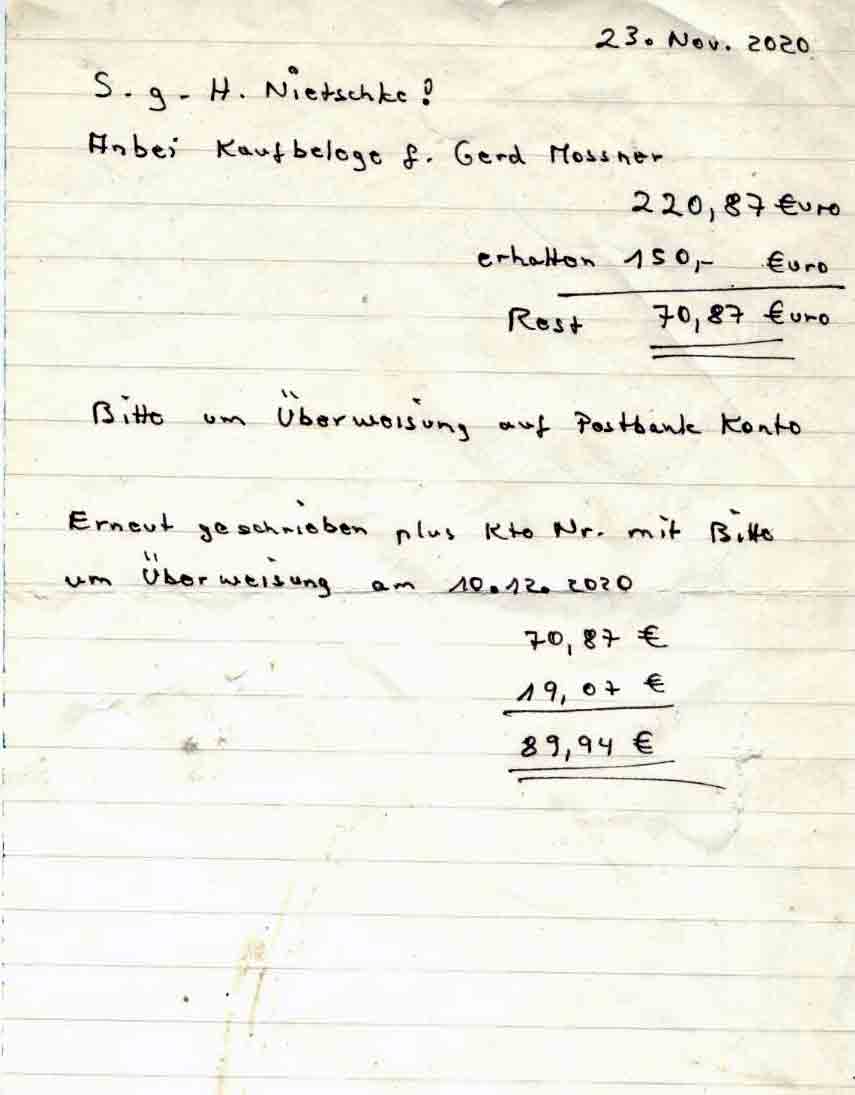 23. Nov. 2020
S. g. H. Nietschke!
Anbei Kaufbelege f. Gerd Mossner
220,87 €uro
erhalten 150,- €uro
Rest 70,87 €uro
Bitte um Überweisung auf Postbank Konto
Erneut geschrieben plus Kto Nr. mit Bitte
um Überweisung am 10.12.2020
70,87 €
19,07 €
89,94 €